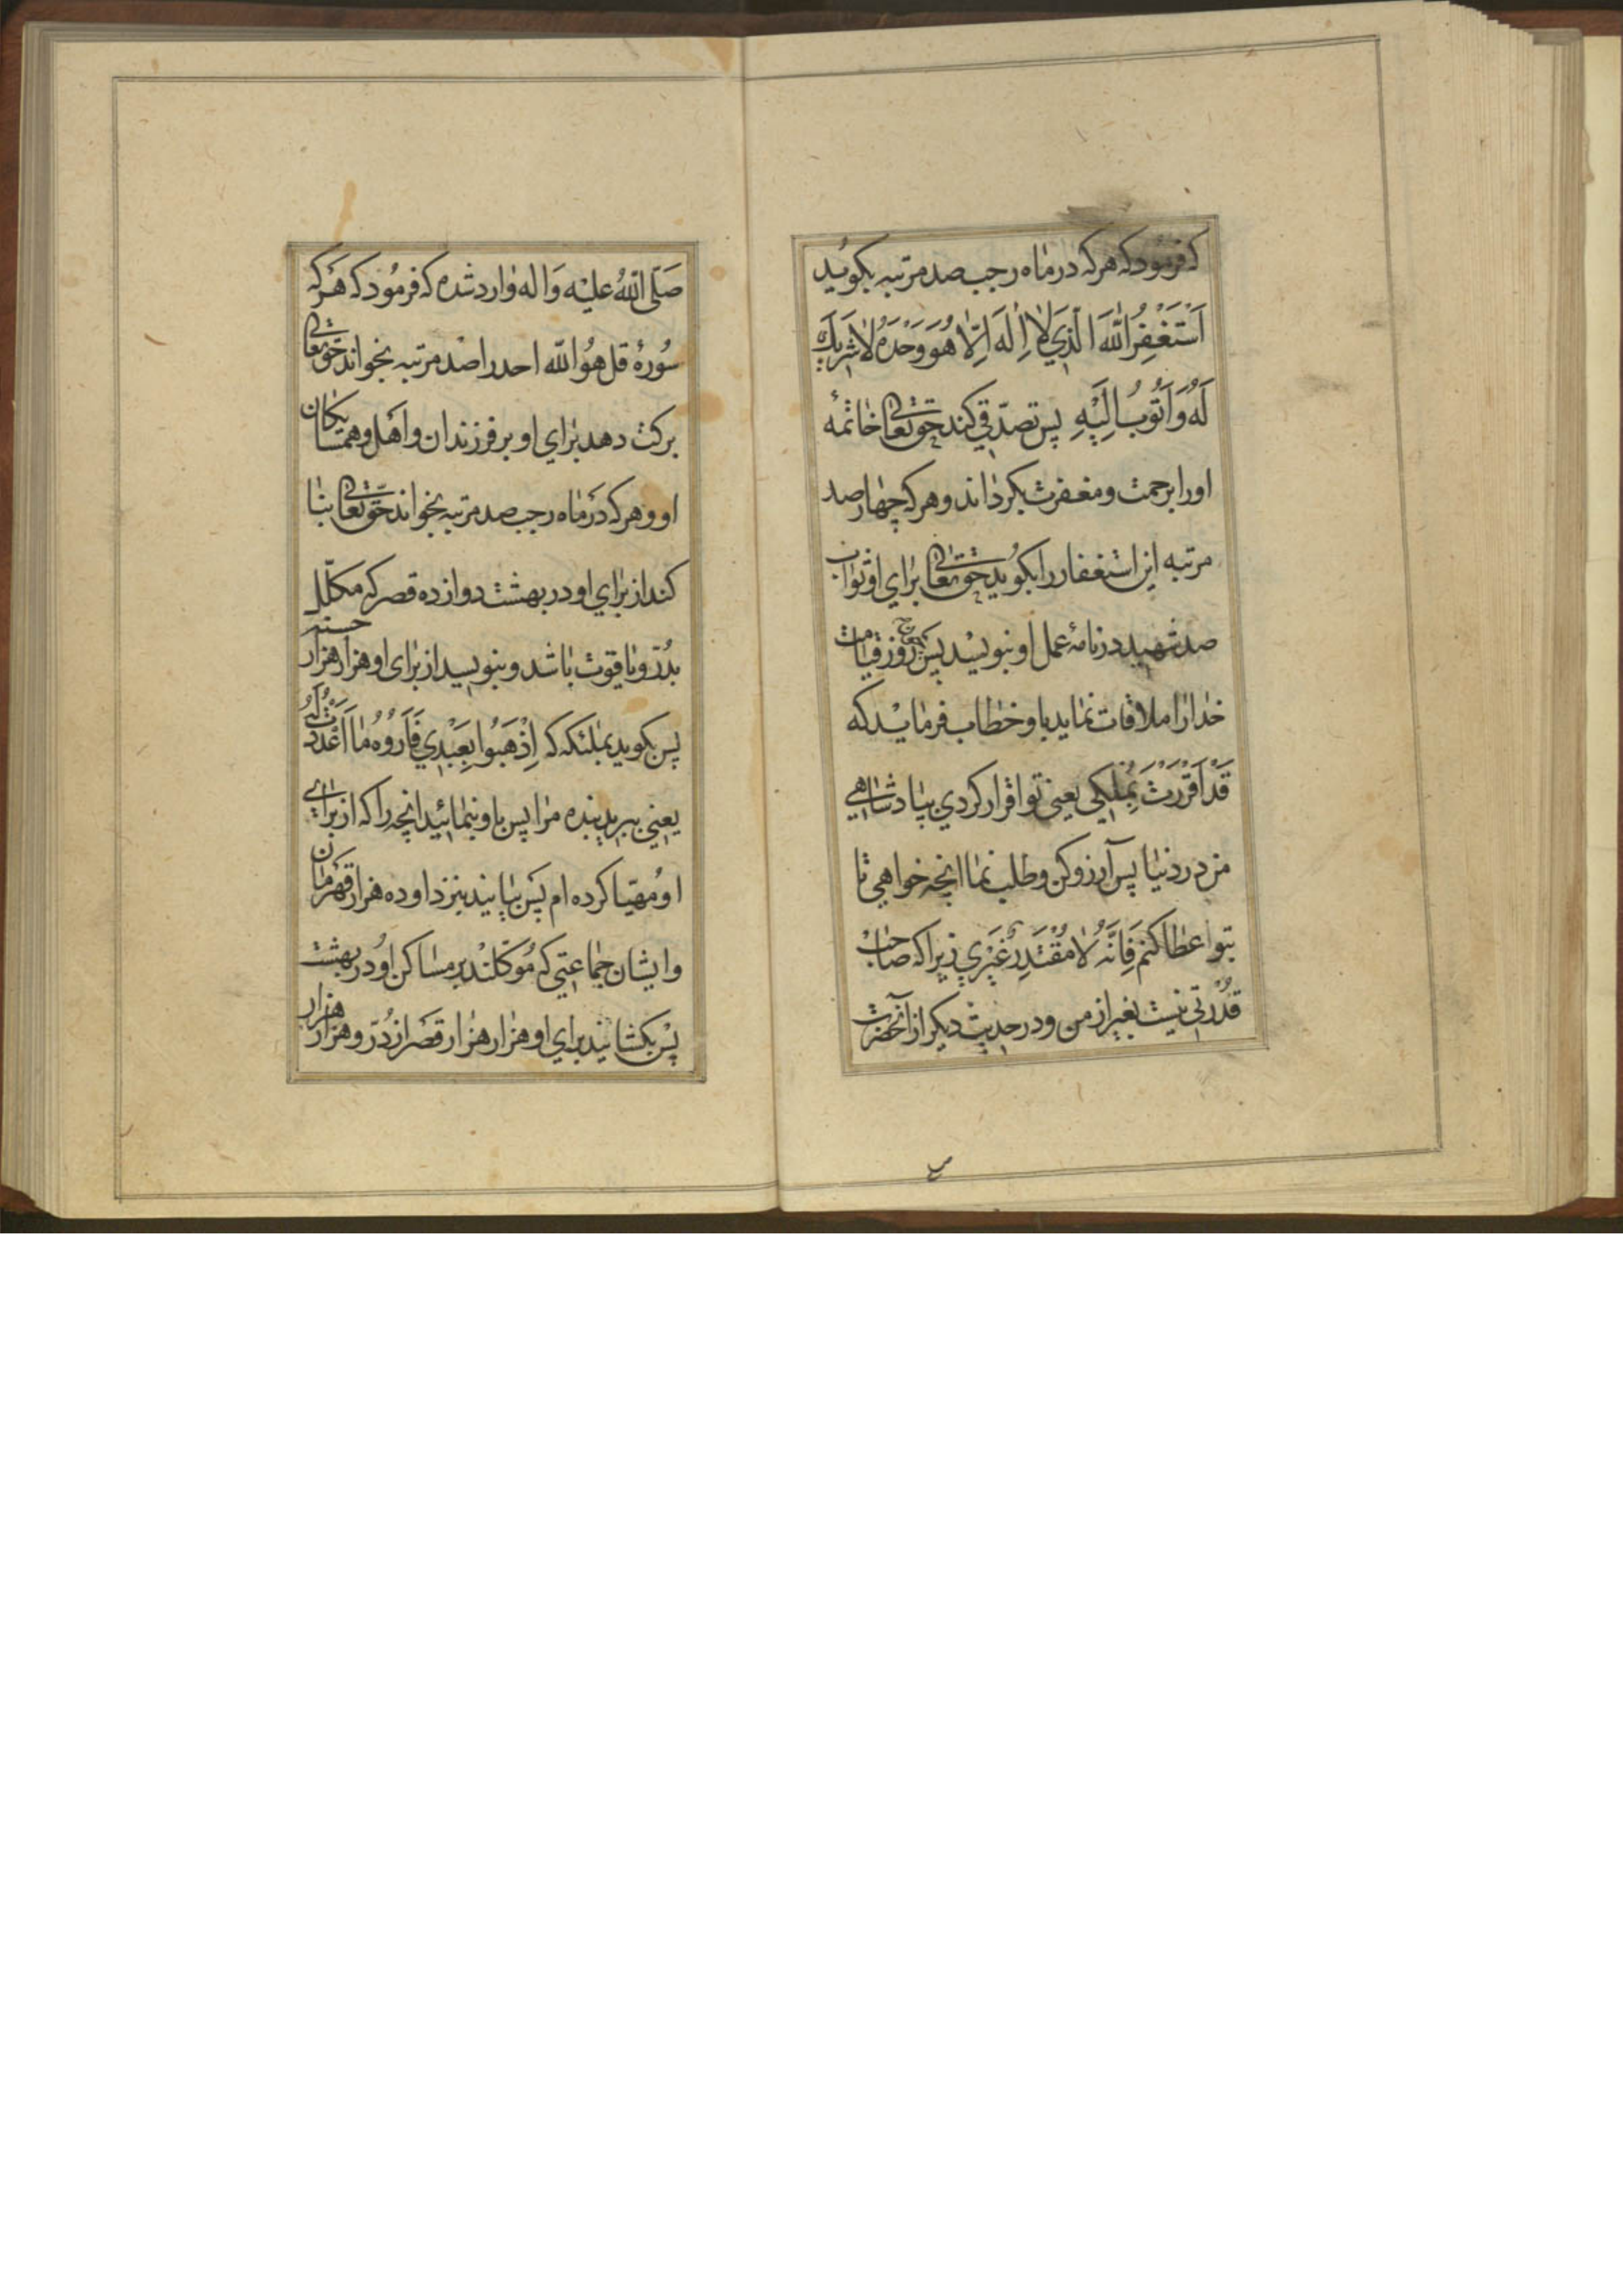 که فرمود که هر که در ماه رجب صد مرتبه بکوید
اَسْتَغْفِرُ اللّٰهَ الَّذِي لا اِلٰهَ اِلّا هُوَ وَحْدَهُ لا شَرِيكَ
لَهُ وَاَتُوبُ اِلَيْهِ پس تصدّقي کند حق تعالی خاتمه
او را برحمت و مغفرت بکرداند و هر که چهار صد
مرتبه این استغفار را بکوید حق تعالی برای او ثواب
صد شهید در نامهٔ عمل او بنویسد پس روز قیامت
خدا را ملاقات نماید باو خطاب فرماید که
قَدْ اَقْرَرْتَ بِمُلْكِي یعنی تو اقرار کردي بپادشاهي
من در دنیا پس آرزو کن و طلب نما انچه خواهي تا
بتو اعطا کنم فَاِنَّهُ لا مُقْتَدِرٌ غَيْرِي زیرا که صاحب
قدرتي نیست بغیر از من و در حدیث دیکر از آنحضرت
صَلَّى اللّٰهُ عليْه وَاله وارد شده که فرمُود که هَر که
سُورهٔ قل هُوَ اللّٰه احد را صَد مرتبه بخواند حق تعالی
برکت دهد برٰاي او بر فرزندان و اهَل و همسایکان
او و هر که دَر ماه رجب صد مرتبه بخواند حق تعالی بنا
کند از برٰاي او در بهشت دوازده قصر که مکلّل
بدُرّ و یاقوت باشد و بنویسد از برٰای او هزار هزار حسنه
پس بکوید بملئکه که اِذْهَبُوا بِعَبْدِي فَاَرُوهُ مٰا اَعْدَدْتُ لَهُ
یعني ببرید بنده مرٰا پس باو بنمائید انچه را که از برٰاي
او مُهیّا کرده ام پس بیایند بنزد او ده هزار قهرمان
و ایشان جماعتي که مُوکلند بر مسٰاکن اوُ در بهشت
پس بکشایند برٰاي او هزٰار هزٰار قصَر از دُرّ و هزار هزار